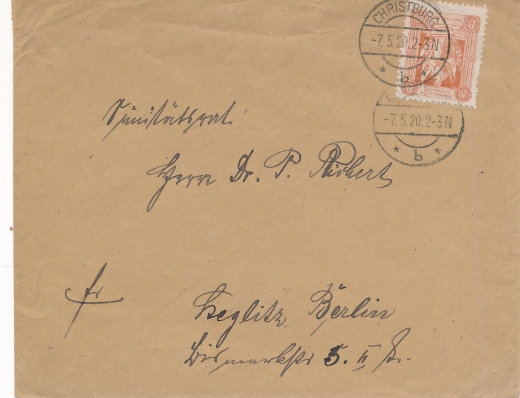 CHRISTBURG
-7.5.20.2-3N
* b *
-7.5.20.2-3N
* b *
Sanitätsrat
Herrn Dr. P. Richert
fr
Steglitz Berlin
Bismarkstr 5. II Tr.